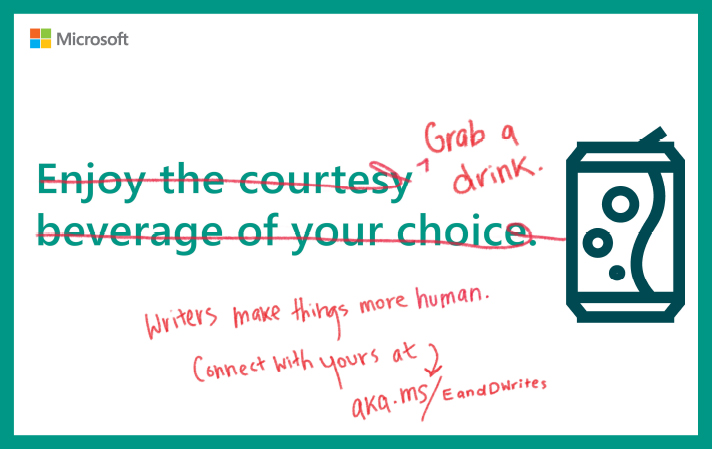 Microsoft
Enjoy the courtesy
beverage of your choice.
Grab a
drink.
Writers make things more human.
Connect with yours at
aka.ms/EandDWrites